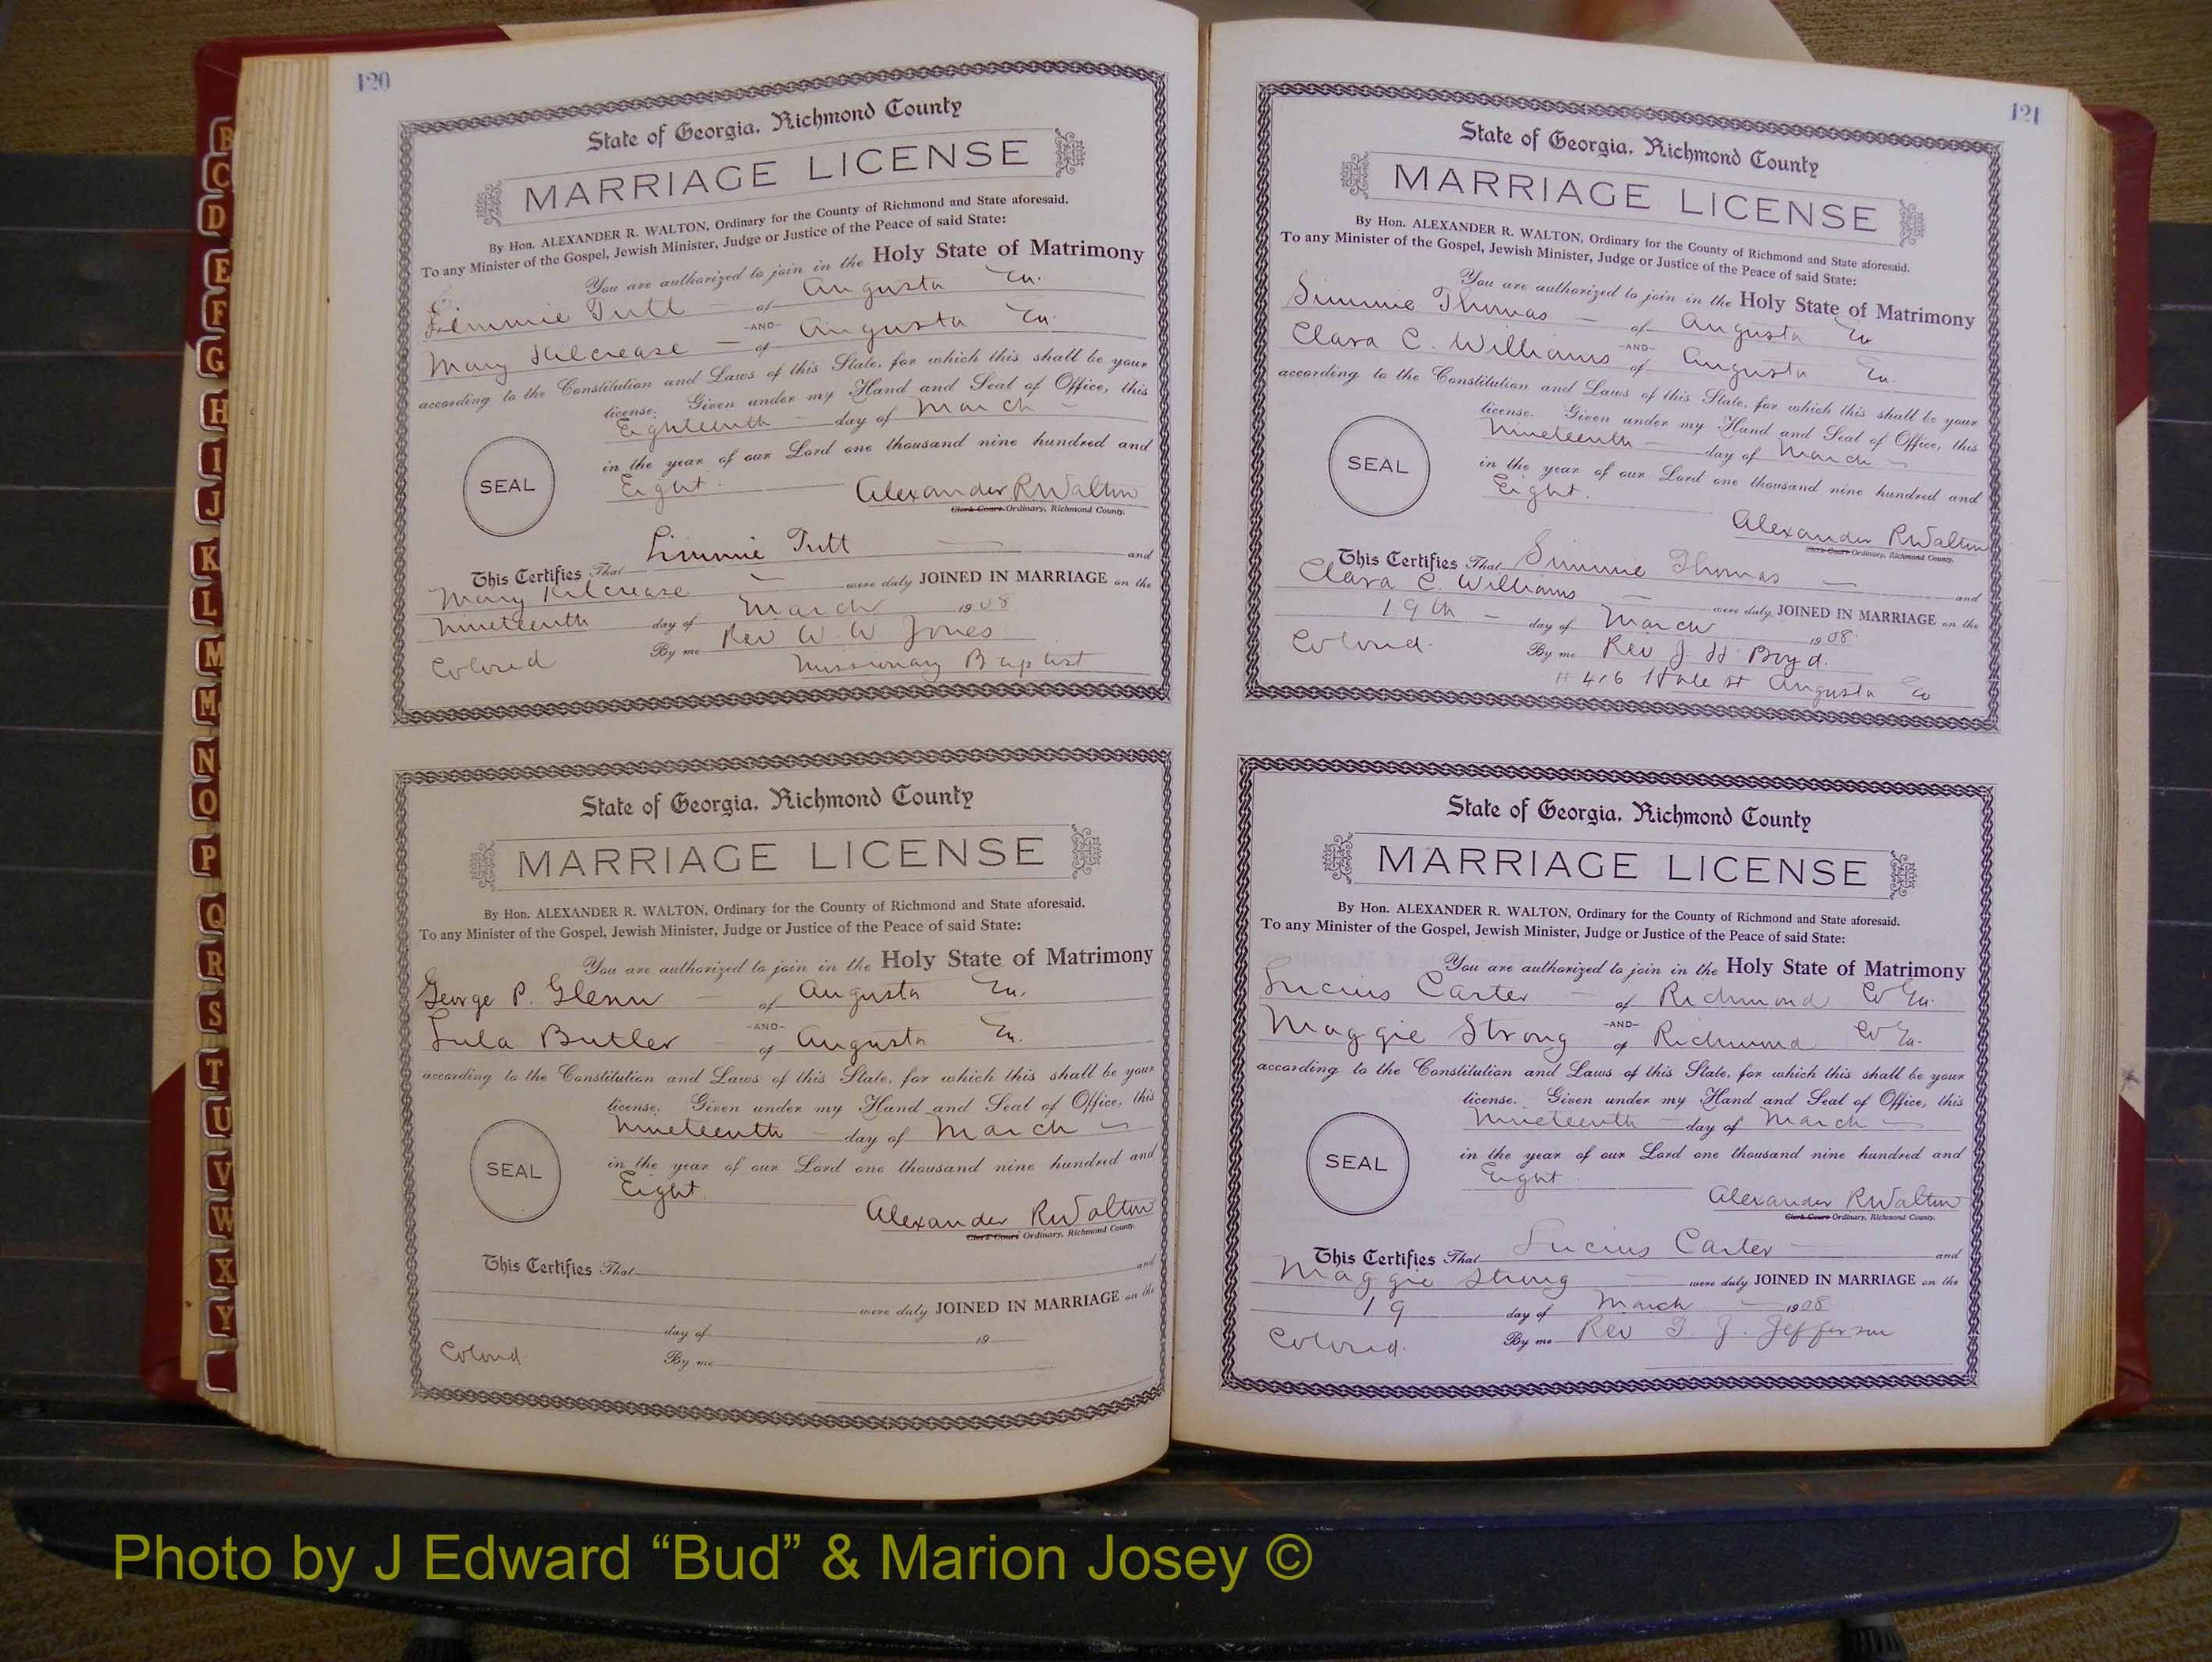 120
State of Georgia, Richmond County
MARRIAGE LICENSE
By Hon. ALEXANDER R. WALTON, Ordinary for the County of Richmond and State aforesaid.
To any Minister of the Gospel, Jewish Minister, Judge or Justice of the Peace of said State:
You are authorized to join in the Holy State of Matrimony
Limmie Tutt of Augusta Ga.
-AND-
Mary Kilcrease of Augusta Ga.
according to the Constitution and Laws of this State, for which this shall be your
license. Given under my Hand and Seal of Office, this
Eighteenth day of March
in the year of our Lord one thousand nine hundred and
SEAL
Eight.
Alexander R Walton
Clerk Court Ordinary, Richmond County.
This Certifies That Limmie Tutt and
Mary Kilcrease were duly JOINED IN MARRIAGE on the
nineteenth day of March 1908
Colored By me Rev W. W Jones
Missionary Baptist
State of Georgia, Richmond County
MARRIAGE LICENSE
By Hon. ALEXANDER R. WALTON, Ordinary for the County of Richmond and State aforesaid.
To any Minister of the Gospel, Jewish Minister, Judge or Justice of the Peace of said State:
You are authorized to join in the Holy State of Matrimony
George P. Glenn of Augusta Ga.
-AND-
Lula Butler of Augusta Ga.
according to the Constitution and Laws of this State, for which this shall be your
license. Given under my Hand and Seal of Office, this
Nineteenth day of March
in the year of our Lord one thousand nine hundred and
SEAL
Eight.
Alexander R Walton
Clerk Court Ordinary, Richmond County.
This Certifies That and
were duly JOINED IN MARRIAGE on the
day of 19
Colored By me
121
State of Georgia, Richmond County
MARRIAGE LICENSE
By Hon. ALEXANDER R. WALTON, Ordinary for the County of Richmond and State aforesaid.
To any Minister of the Gospel, Jewish Minister, Judge or Justice of the Peace of said State:
You are authorized to join in the Holy State of Matrimony
Simmie Thomas of Augusta Ga
-AND-
Clara C. Williams of Augusta Ga.
according to the Constitution and Laws of this State, for which this shall be your
license. Given under my Hand and Seal of Office, this
Nineteenth day of March
in the year of our Lord one thousand nine hundred and
SEAL
Eight.
Alexander R Walton
Clerk Court Ordinary, Richmond County.
This Certifies That Simmie Thomas and
Clara C. Williams were duly JOINED IN MARRIAGE on the
19th day of March 1908.
Colored. By me Rev J. H Boyd.
# 416 Hale St Augusta Ga
State of Georgia, Richmond County
MARRIAGE LICENSE
By Hon. ALEXANDER R. WALTON, Ordinary for the County of Richmond and State aforesaid.
To any Minister of the Gospel, Jewish Minister, Judge or Justice of the Peace of said State:
You are authorized to join in the Holy State of Matrimony
Lucius Carter of Richmond Co Ga.
-AND-
Maggie Strong of Richmond Co Ga.
according to the Constitution and Laws of this State, for which this shall be your
license. Given under my Hand and Seal of Office, this
Nineteenth day of March
in the year of our Lord one thousand nine hundred and
SEAL
Eight.
Alexander R Walton
Clerk Court Ordinary, Richmond County.
This Certifies That Lucius Carter and
Maggie Strong were duly JOINED IN MARRIAGE on the
19 day of March 1908
Colored. By me Rev G. J. Jefferson
B
C
D
E
F
G
H
I
J
K
L
M
M
N
O
P
Q
R
S
T
U
V
W
X
Y
Photo by J Edward “Bud” & Marion Josey ©